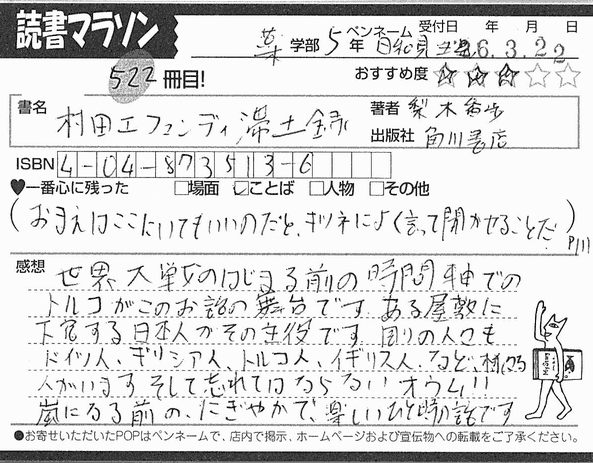 読書マラソン
522冊目!
薬学部 5年 ペンネーム 日和見 受付日 年 月 日
6.3.22
おすすめ度 ☆☆☆☆☆
書名 村田エフェンディ滞土録
著者 梨木香歩
出版社 角川書店
ISBN 4-04-873513-6
♥一番心に残った □場面 ☑ことば □人物 □その他
(おまえはここにいてもいいのだと、キツネによく言って聞かせることだ) P111
感想 世界大戦のはじまる前の時間軸での
トルコがこのお話の舞台です。ある屋敷に
下宿する日本人がその主役です。周りの人々も
ドイツ人、ギリシア人、トルコ人、イギリス人、など、様々な
人がいます。そして忘れてはならないオウム!!
嵐になる前の、にぎやかで、楽しいひと時の話です
●お寄せいただいたPOPはペンネームで、店内で掲示、ホームページおよび宣伝物への転載をご了承ください。